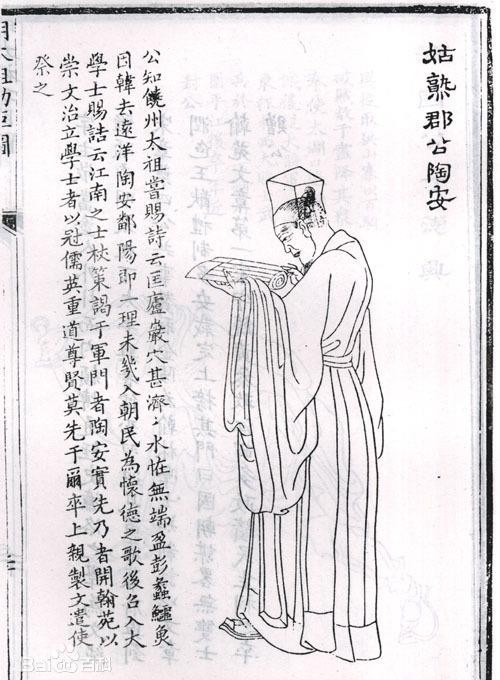 姑熟郡公陶安
公知饒州太祖嘗賜詩云匡廬巖穴甚濟〻水恠無端盈彭蠡鱷魚
因韓去遠洋陶安鄱陽即一理未幾入朝民為懷德之歌後召入大
學士賜誥云江南之士杖策謁于軍門者陶安實先乃者開翰苑以
崇文治立學士者以冠儒英重道尊賢莫先于爾卒上親製文遣使
祭之
明太祖功臣圖
Bai百科